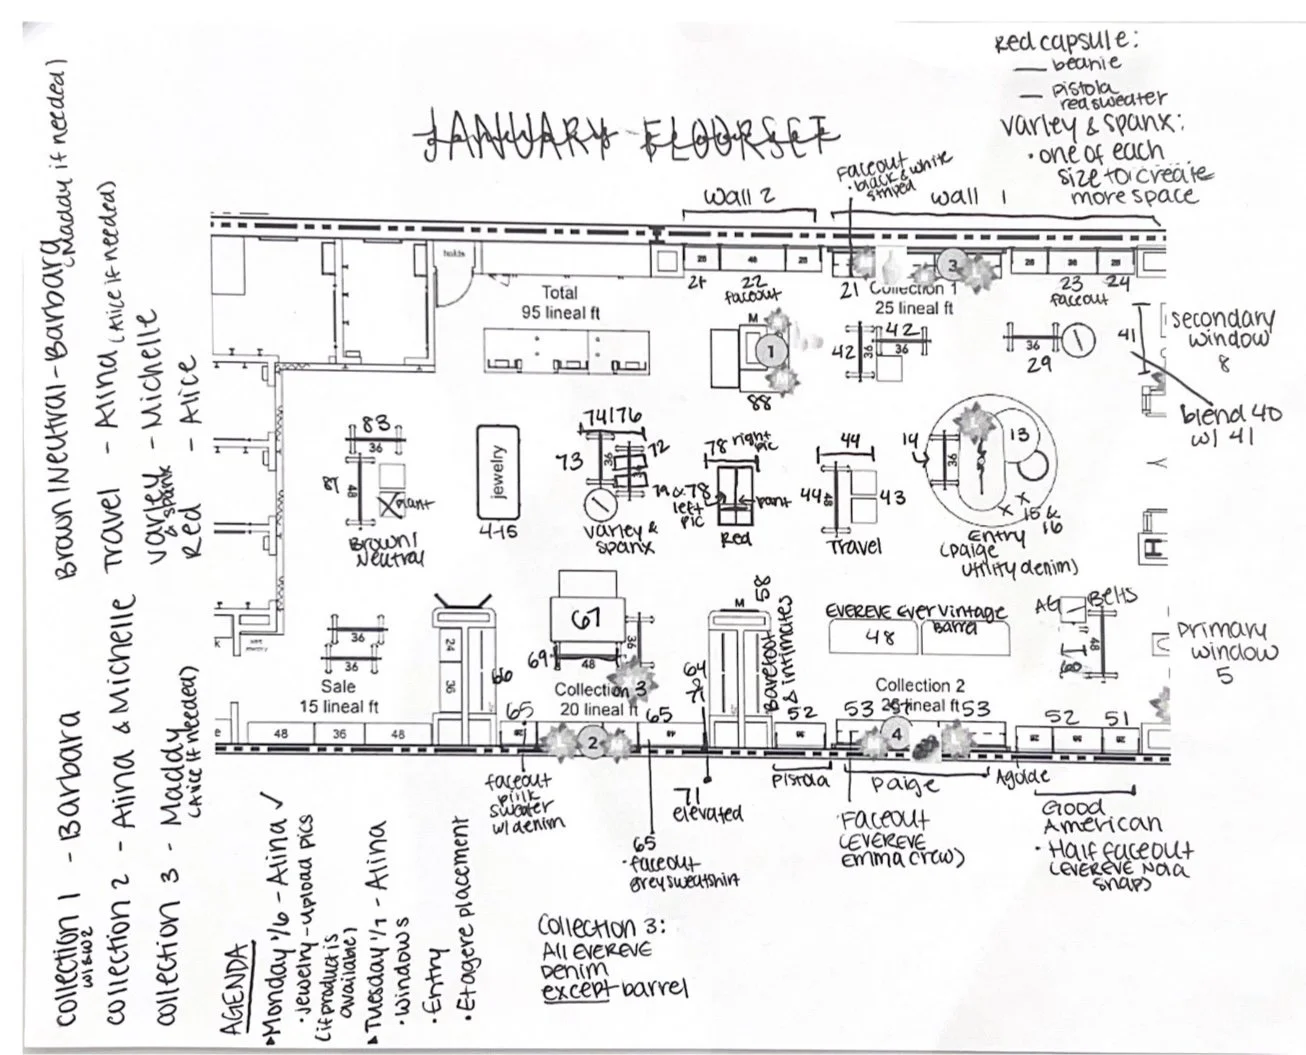 Red capsule:
— beanie
— pistola
red sweater
varley & spanx:
• one of each
size to create
more space
JANUARY FLOORSET
Faceout
• black & white
striped
wall 2
wall 1
holds
Total
95 lineal ft
28
48
28
21
22
faceout
21
3
Collection 1
25 lineal ft
28
36
28
23
24
faceout
M
1
88
42
42
36
36
36
29
41
secondary
window
8
blend 40
w/ 41
83
36
87
48
plant
Brown/
Neutral
jewelry
4-15
74/76
73
36
72
varley &
spanx
78 right
pic
79 & 78
left
pic
pant
Red
44
44
48
43
Travel
14
36
13
15 &
16
Entry
(paige
utility denim)
36
36
Sale
15 lineal ft
48
36
48
24
36
66
67
69
48
36
Collection 3
20 lineal ft
65
65
2
64
&
71
M
58
Barefoot
& intimates
EVEREVE Ever Vintage
48
Barrel
AG
Belts
48
primary
window
5
Collection 2
25 lineal ft
52
53
53
4
52
51
pistola
paige
Agolde
faceout
pink
sweater
w/ denim
65
• faceout
grey sweatshirt
71
elevated
Faceout
(EVEREVE
Emma crew)
Good
American
• Half faceout
(EVEREVE Nola
snap)
Collection 3:
All EVEREVE
Denim
except barrel
Collection 1 - Barbara
W1 & W2
Collection 2 - Alina & Michelle
Collection 3 - Maddy
(Alice if needed)
Brown/Neutral - Barbara
(Maddy if needed)
Travel - Alina (Alice if needed)
varley - Michelle
& spank
Red - Alice
AGENDA
▸Monday 1/6 - Alina ✓
• Jewelry - upload pics
(if product is
available)
▸Tuesday 1/7 - Alina
• Windows
• Entry
• Etagere placement